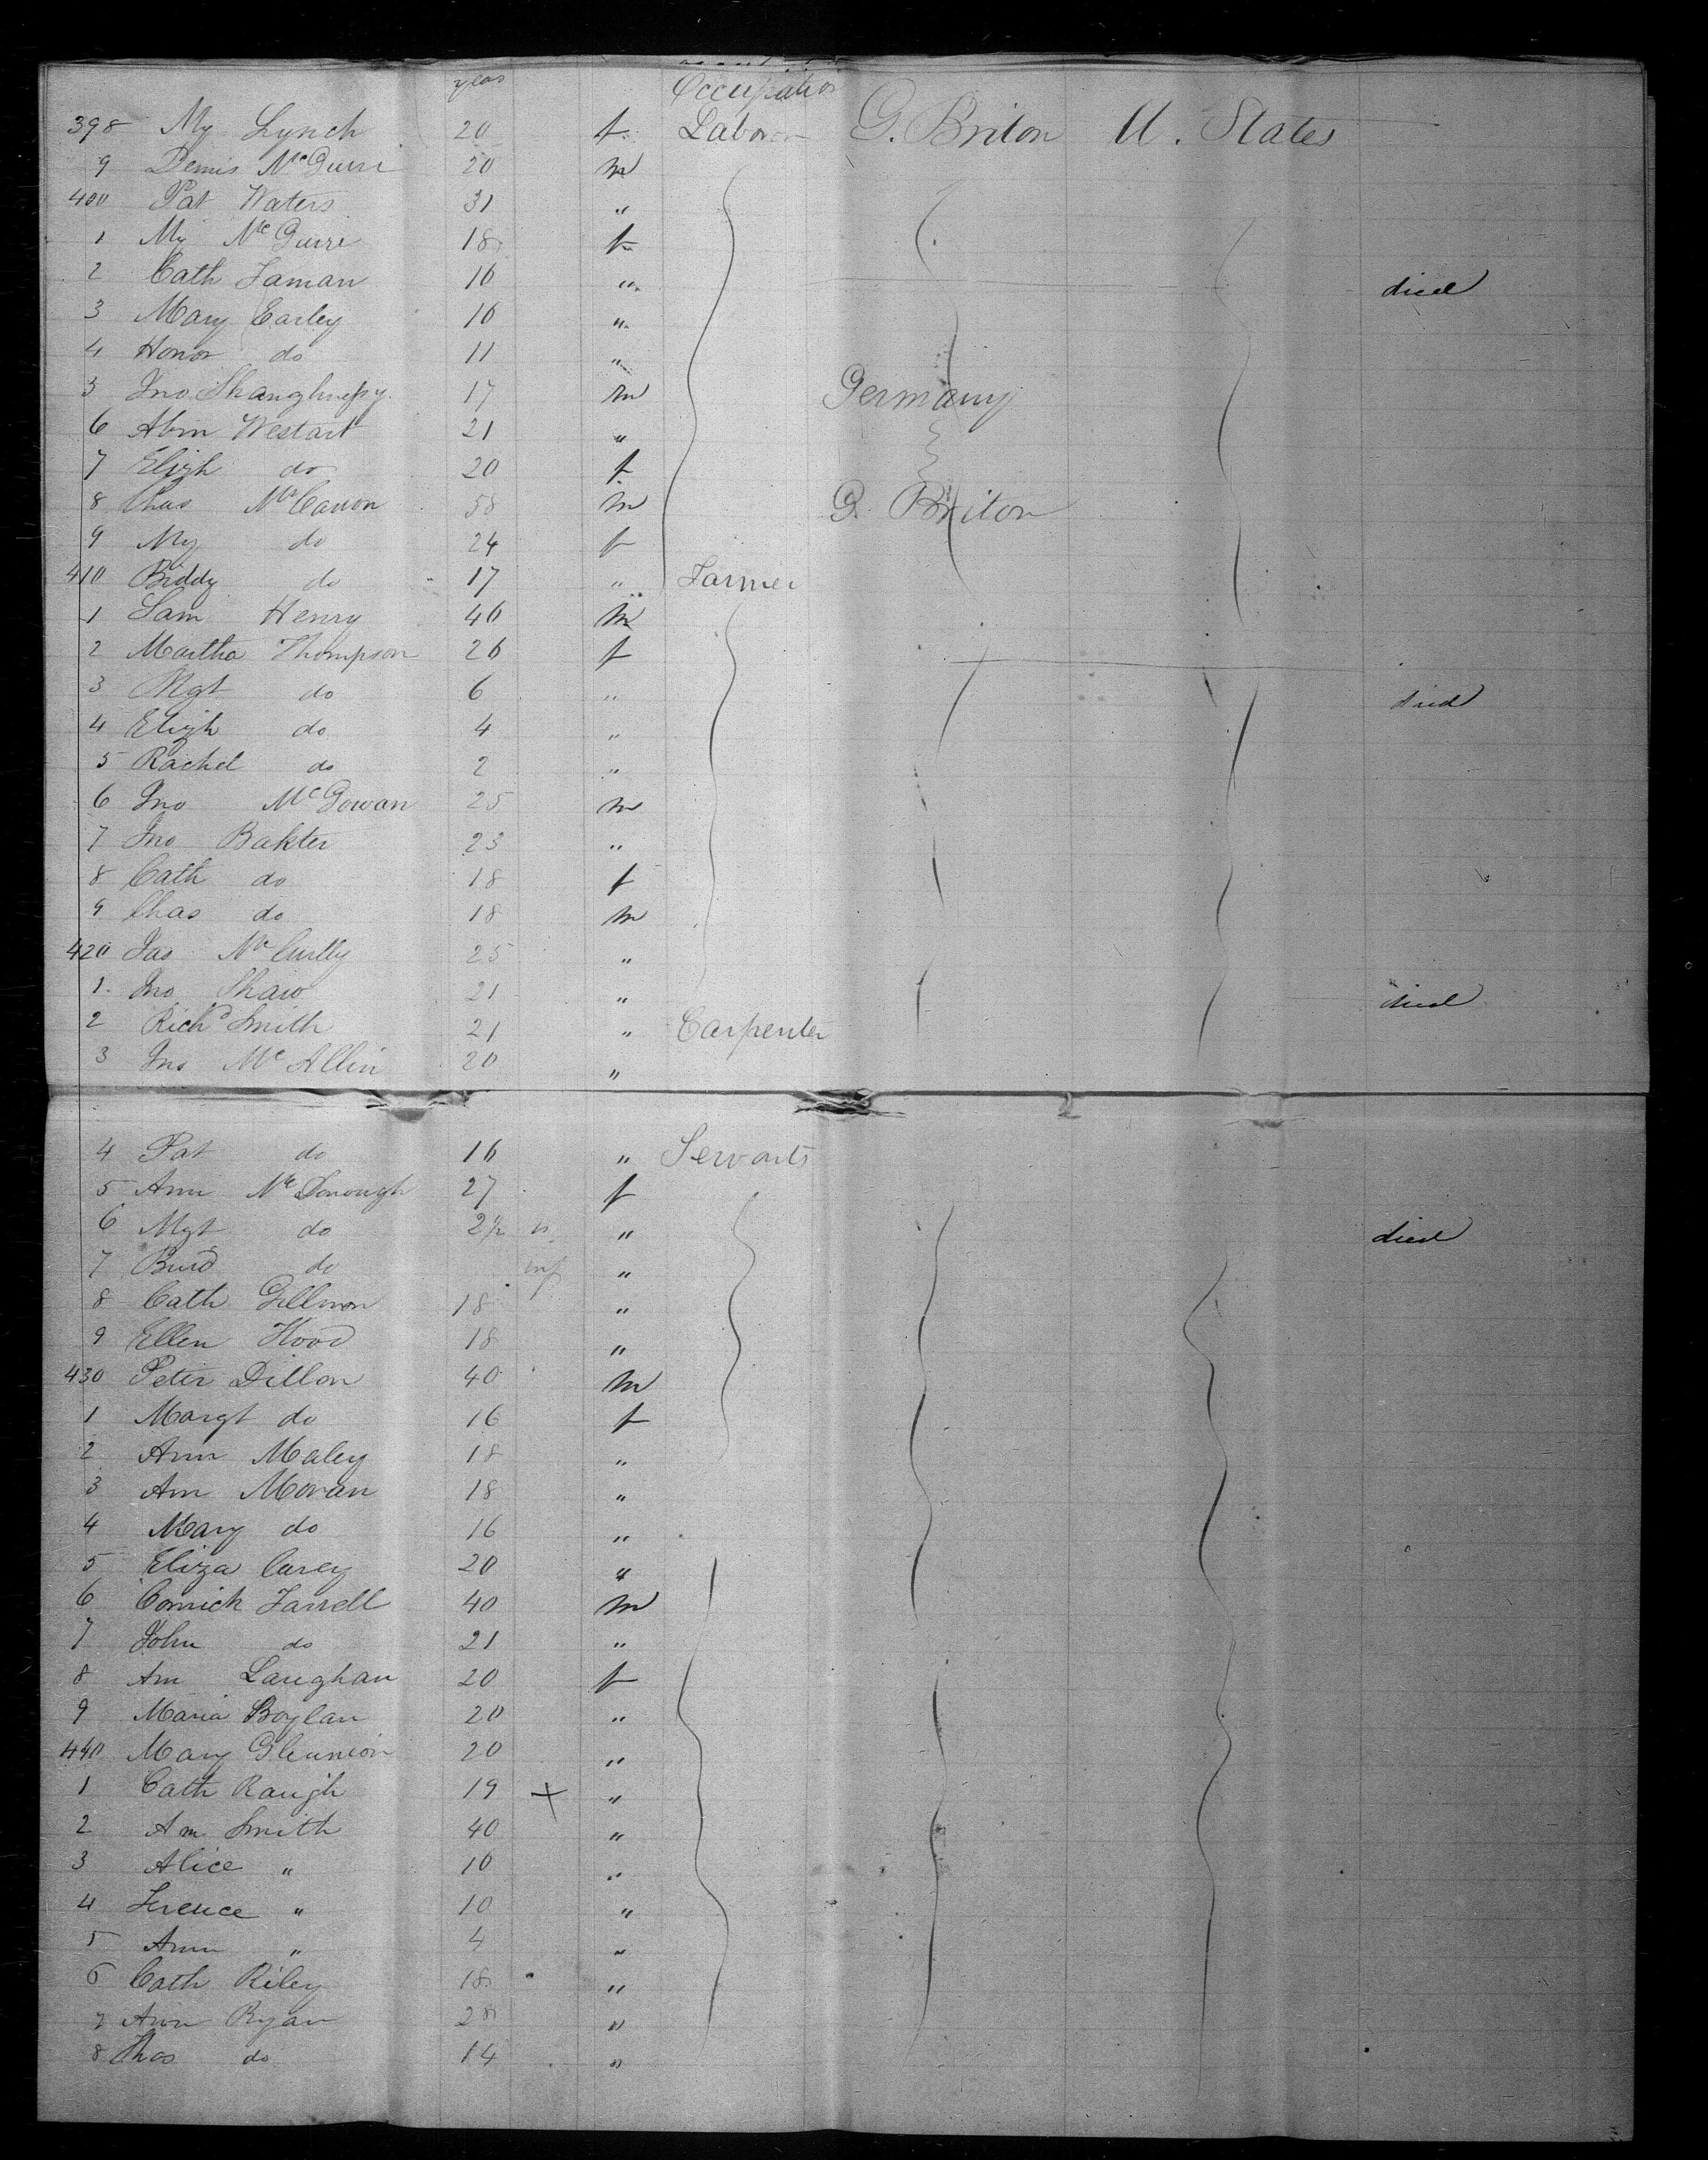 years Occupation
398 My Lynch 20 f Laborer G. Briton U. States
9 Denis McGuire 20 m
400 Pat Waters 31 "
1 My McGuire 18 f
2 Cath Laman 16 " died
3 Mary Earley 16 "
4 Honor do 11 "
3 Jno Shanghnessy 17 m Germany
6 Abm Westart 21 "
7 Elizh do 20 f
8 Chas McCarron 58 m G. Briton
9 My do 24 f
410 Biddy do 17 " Farmer
1 Sam Henry 46 m
2 Martha Thompson 26 f
3 Mgt do 6 " died
4 Elizh do 4 "
5 Rachel do 2 "
6 Jno McGowan 25 m
7 Jno Bakter 23 "
8 Cath do 18 f
9 Chas do 18 m
420 Jas McCully 25 "
1 Jno Shaw 21 " died
2 Richd Smith 21 " Carpenter
3 Jno McAllin 20 "
4 Pat do 16 " Servants
5 Ann McDonough 27 f
6 Mgt do 2½ " died
7 do inf "
8 Cath Gillmon 18 "
9 Ellen Hood 18 "
430 Peter Dillon 40 m
1 Margt do 16 f
2 Ann Maley 18 "
3 Ann Moran 18 "
4 Mary do 16 "
5 Eliza Carey 20 "
6 Cormick Farrell 40 m
7 John do 21 "
8 Ann Laughan 20 f
9 Maria Boylan 20 "
440 Mary Glennion 20 "
1 Cath Raugh 19 + "
2 Am Smith 40 "
3 Alice " 16 "
4 Terence " 10 "
5 Ann " 4 "
6 Cath Riley 18 "
7 Ann Ryan 28 "
8 Thos do 14 "